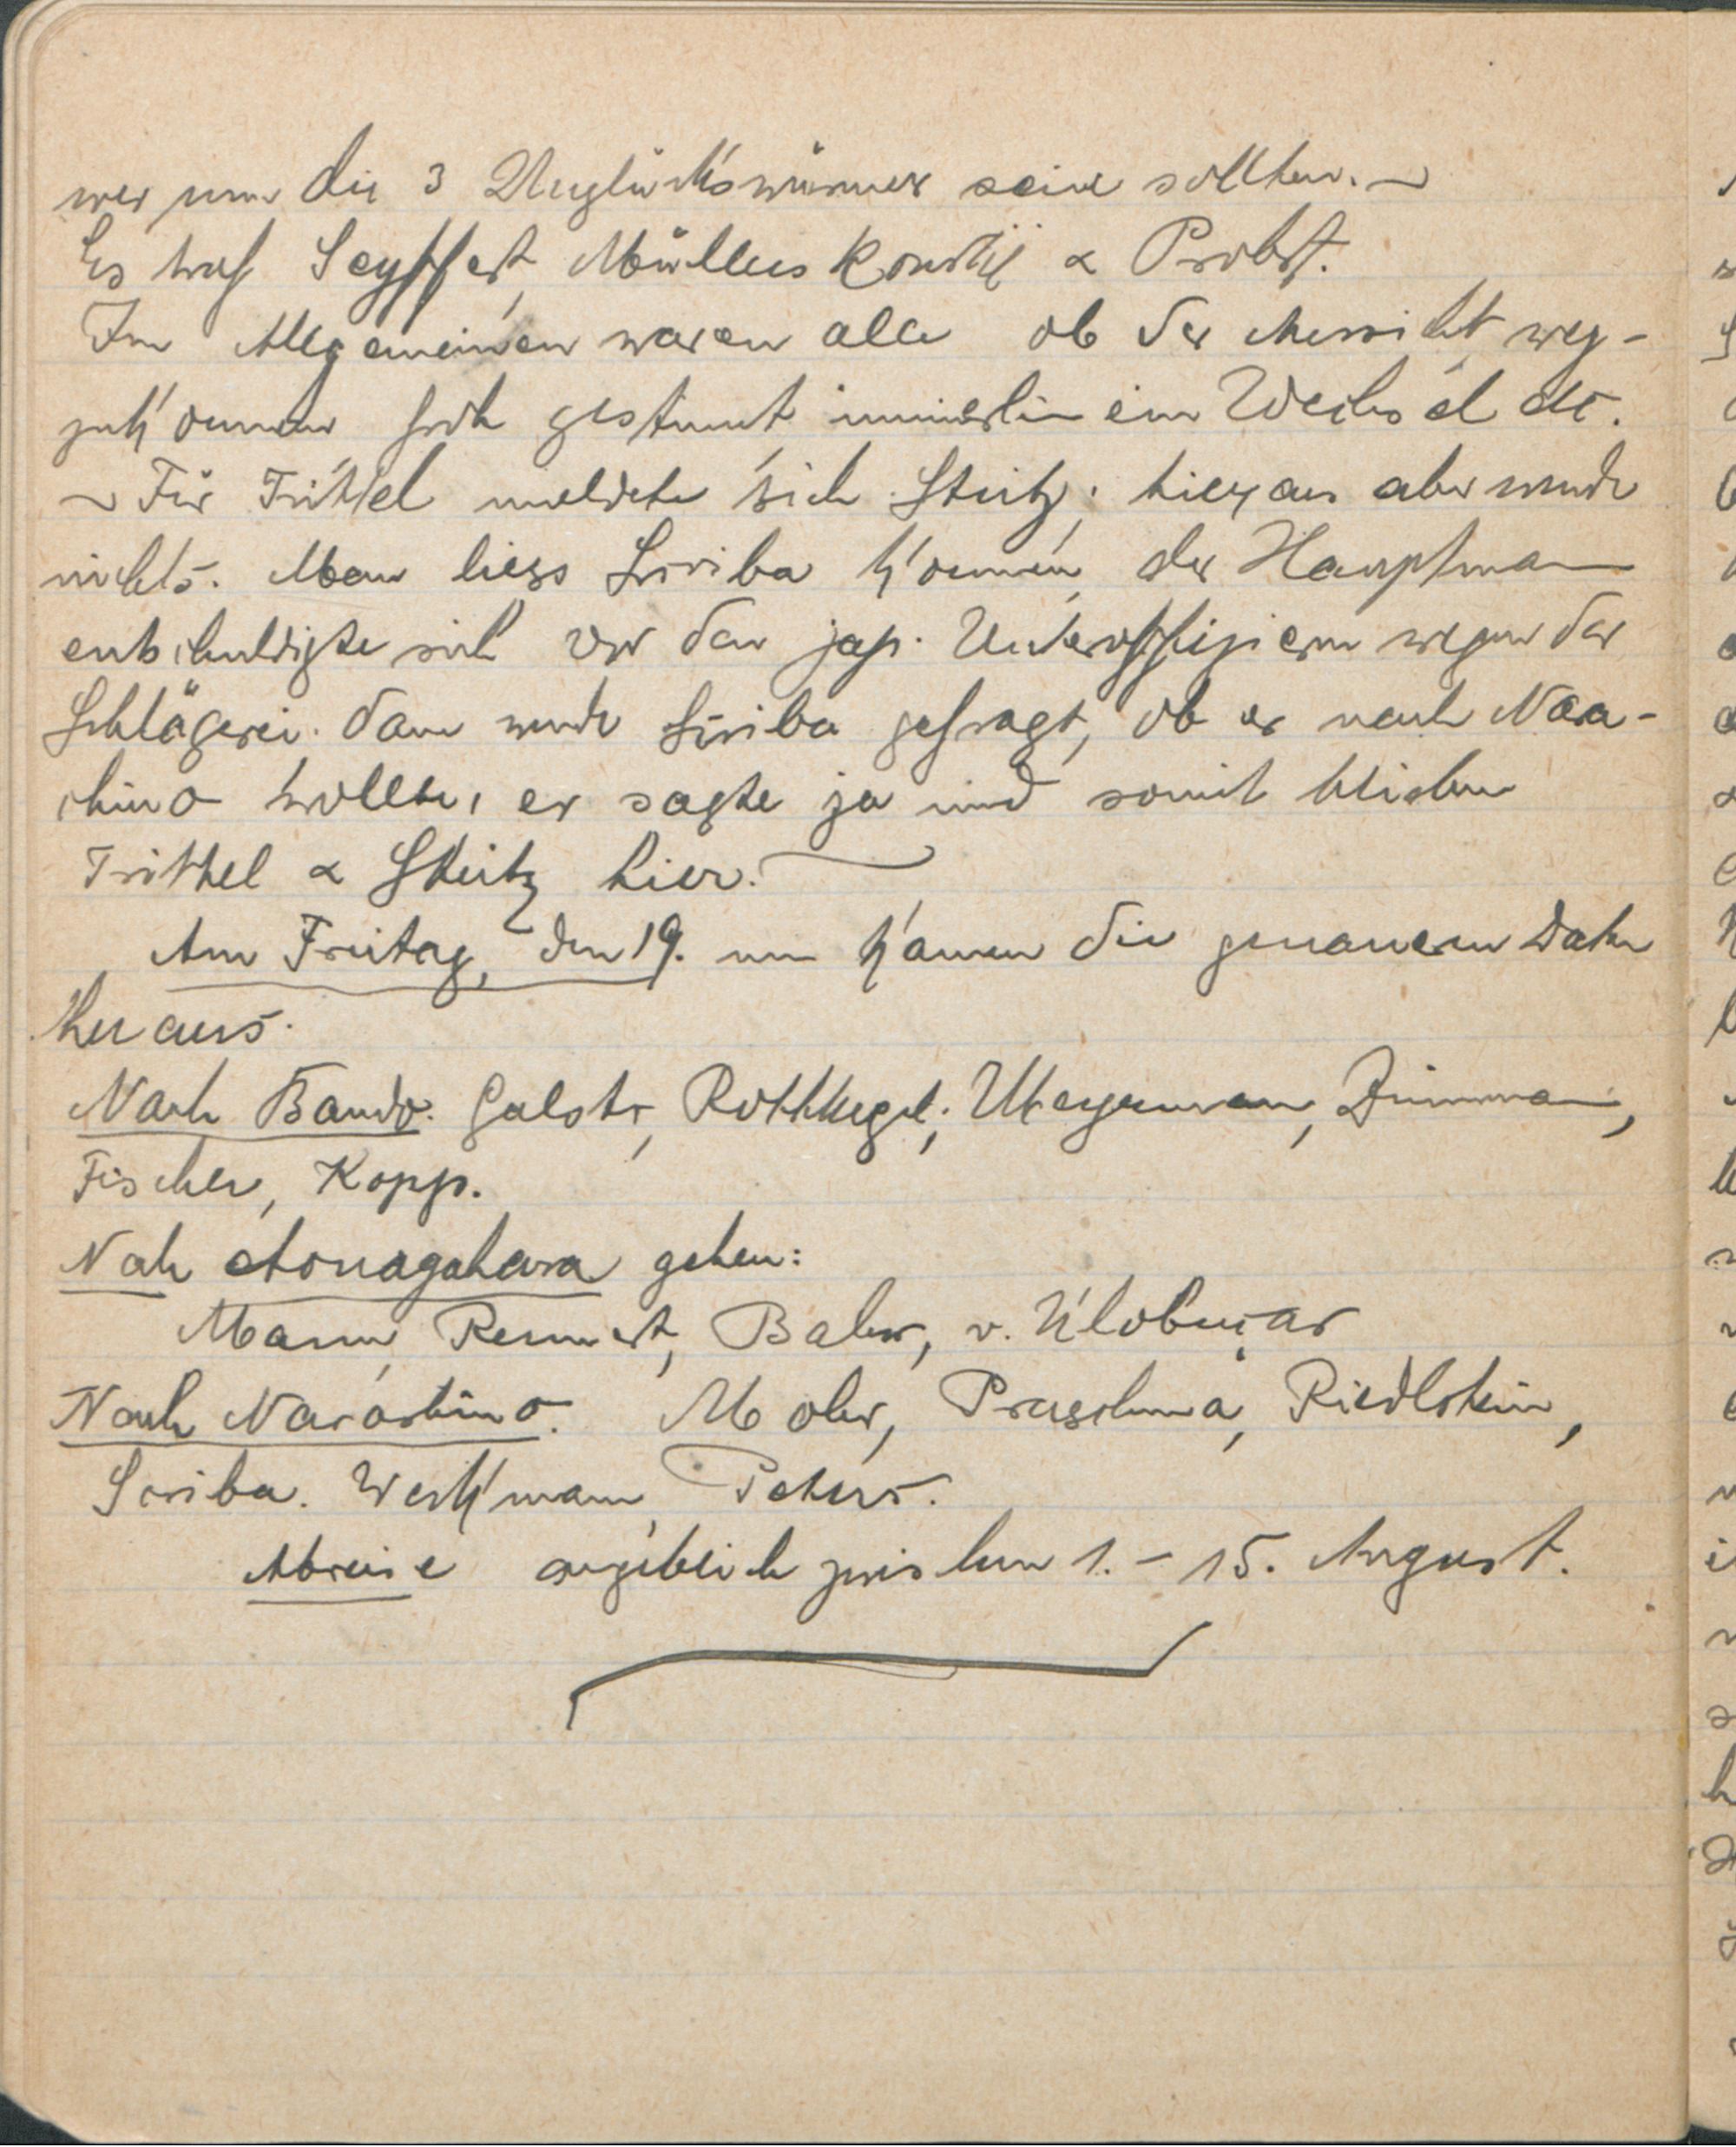 wer nun die 3 Unglückswürmer seien sollten. —
Es traf Seyffert, Müllers & Probst.
Im Allgemeinen waren alle ob der Aussicht weg-
zukommen froh gestimmt, immerhin ein Wechsel etc.
— Für Trittel meldete sich Steitz; hieraus aber wurde
nichts. Man liess Scriba kommen, der Hauptmann
entschuldigte sich vor den jap. Unteroffizieren wegen der
Schlägerei. Dann wurde Scriba gefragt, ob er nach Nara-
shino wollte, er sagte ja und somit blieben
Tritthel & Steitz hier.
Am Freitag, den 19. nun kamen die genaueren Daten
heraus.
Nach Bando. Galster, Rothkegel, Meyermann, Dümmann,
Fischer, Kopp.
Nach Aonogahara gehen:
Mann, Rennert, Baler, v. Klobuçar
Nach Narashino. Moler, Praschma, Riedlstein,
Scriba. Werkmann, Peters.
Abreise angeblich zwischen 1. – 15. August.